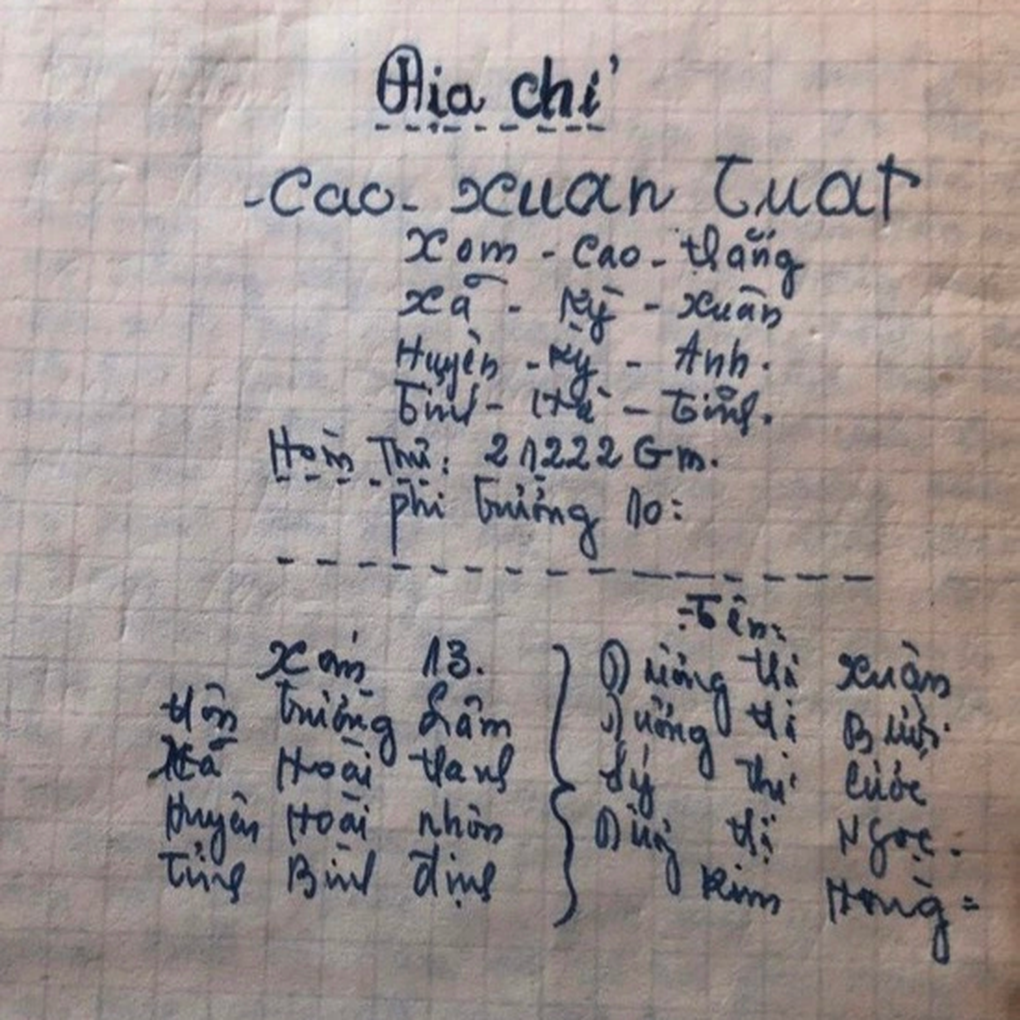 Địa chỉ
- Cao - Xuan Tuat
Xom - Cao - thắng
Xã - Kỳ - Xuân
Huyện - Kỳ - Anh.
Tỉnh - Hà - Tĩnh.
Hòm Thư: 21222 Gm.
phi trường 10:
- Tên:
Xóm 13.
thôn Trường Lâm
Xã Hoài thanh
Huyện Hoài nhơn
Tỉnh Bình định
Dương thị Xuân
Dương thị Bưởi
Lý thị Cước
Dương thị Ngọc.
Kim Hồng =